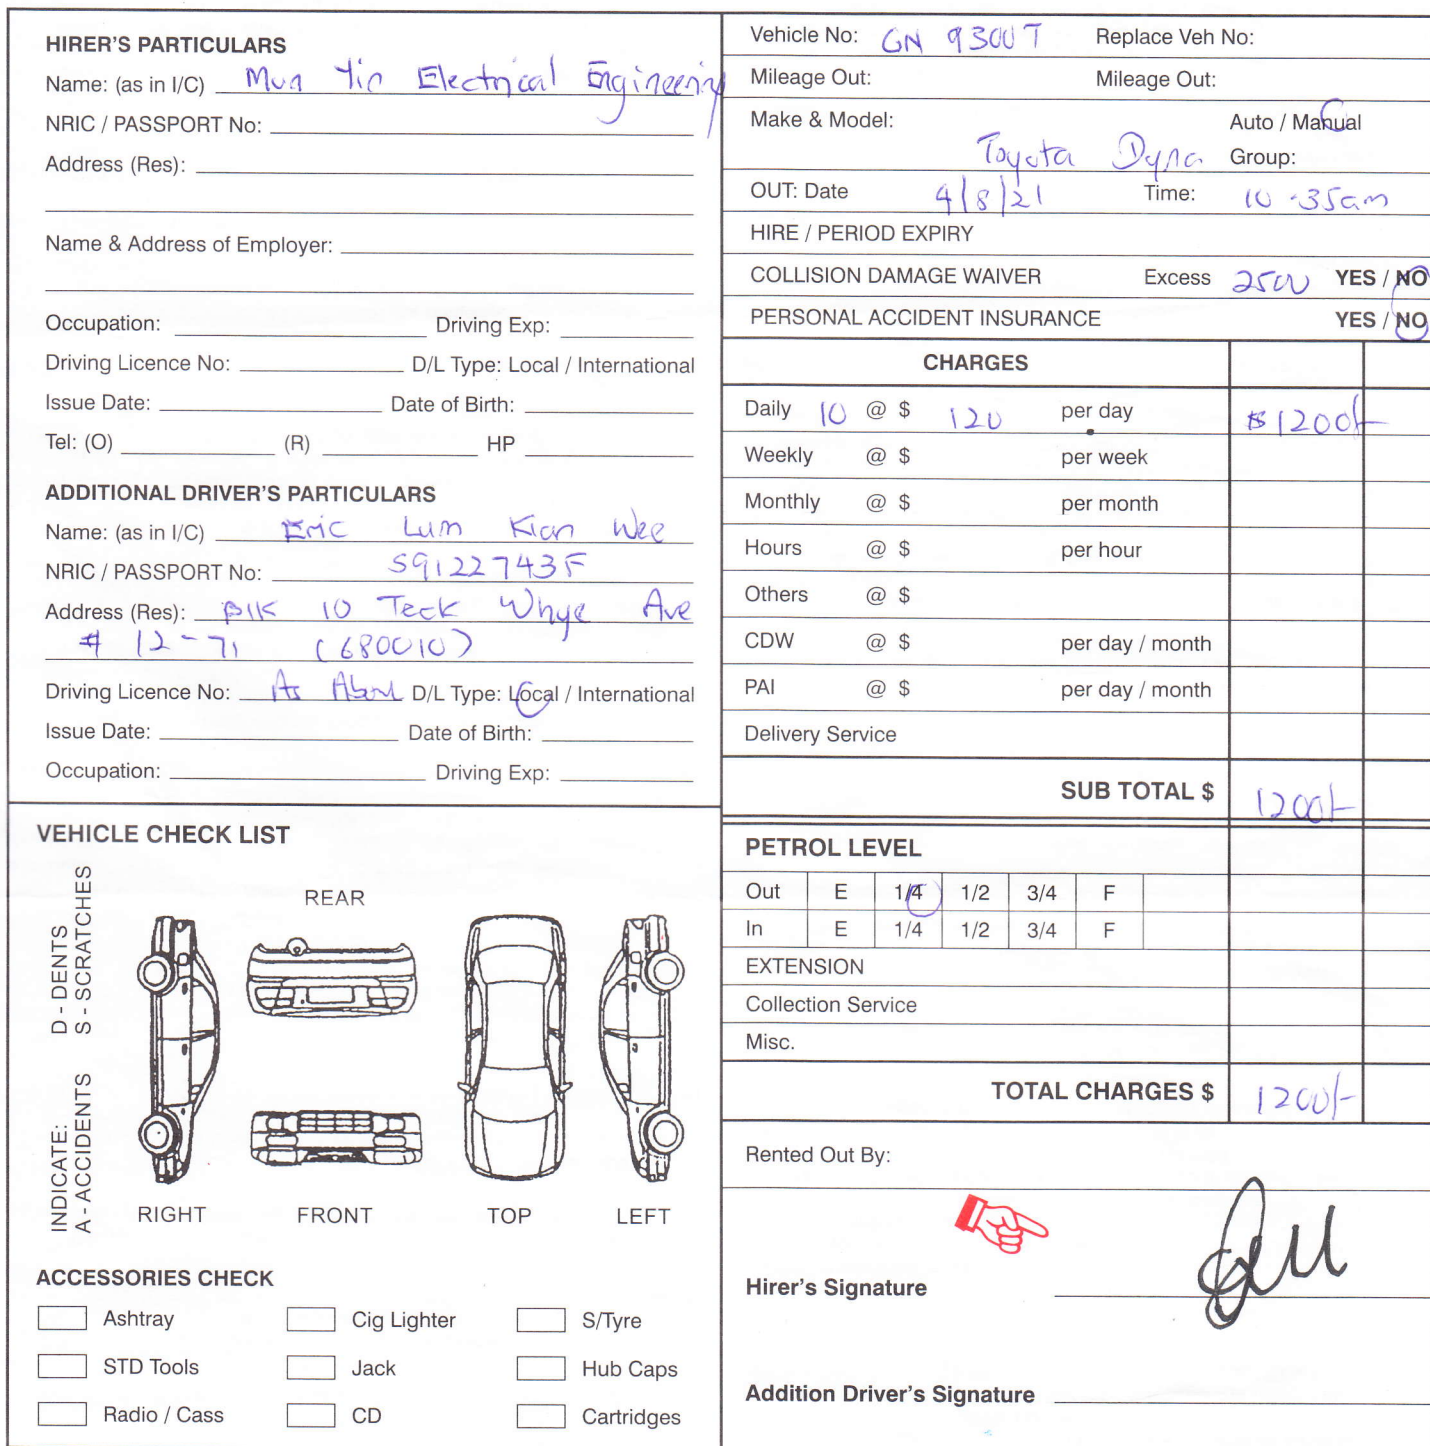 HIRER'S PARTICULARS
Name: (as in I/C) Mun Yin Electrical Engineering
NRIC / PASSPORT No:
Address (Res):
Name & Address of Employer:
Occupation: Driving Exp:
Driving Licence No: D/L Type: Local / International
Issue Date: Date of Birth:
Tel: (O) (R) HP
ADDITIONAL DRIVER'S PARTICULARS
Name: (as in I/C) Eric Lum Kian Wee
NRIC / PASSPORT No: S9122743F
Address (Res): Blk 10 Teck Whye Ave
# 12-71 (680010)
Driving Licence No: As Above D/L Type: Local / International
Issue Date: Date of Birth:
Occupation: Driving Exp:
VEHICLE CHECK LIST
INDICATE: D - DENTS
A - ACCIDENTS S - SCRATCHES
REAR
RIGHT FRONT TOP LEFT
ACCESSORIES CHECK
Ashtray Cig Lighter S/Tyre
STD Tools Jack Hub Caps
Radio / Cass CD Cartridges
Vehicle No: GN 9300T Replace Veh No:
Mileage Out: Mileage Out:
Make & Model: Auto / Manual
Toyota Dyna Group:
OUT: Date 4/8/21 Time: 10.35am
HIRE / PERIOD EXPIRY
COLLISION DAMAGE WAIVER Excess 2500 YES / NO
PERSONAL ACCIDENT INSURANCE YES / NO
CHARGES
Daily 10 @ $ 120 per day $1200/-
Weekly @ $ per week
Monthly @ $ per month
Hours @ $ per hour
Others @ $
CDW @ $ per day / month
PAI @ $ per day / month
Delivery Service
SUB TOTAL $ 1200/-
PETROL LEVEL
Out E 1/4 1/2 3/4 F
In E 1/4 1/2 3/4 F
EXTENSION
Collection Service
Misc.
TOTAL CHARGES $ 1200/-
Rented Out By:
Hirer's Signature
Addition Driver's Signature